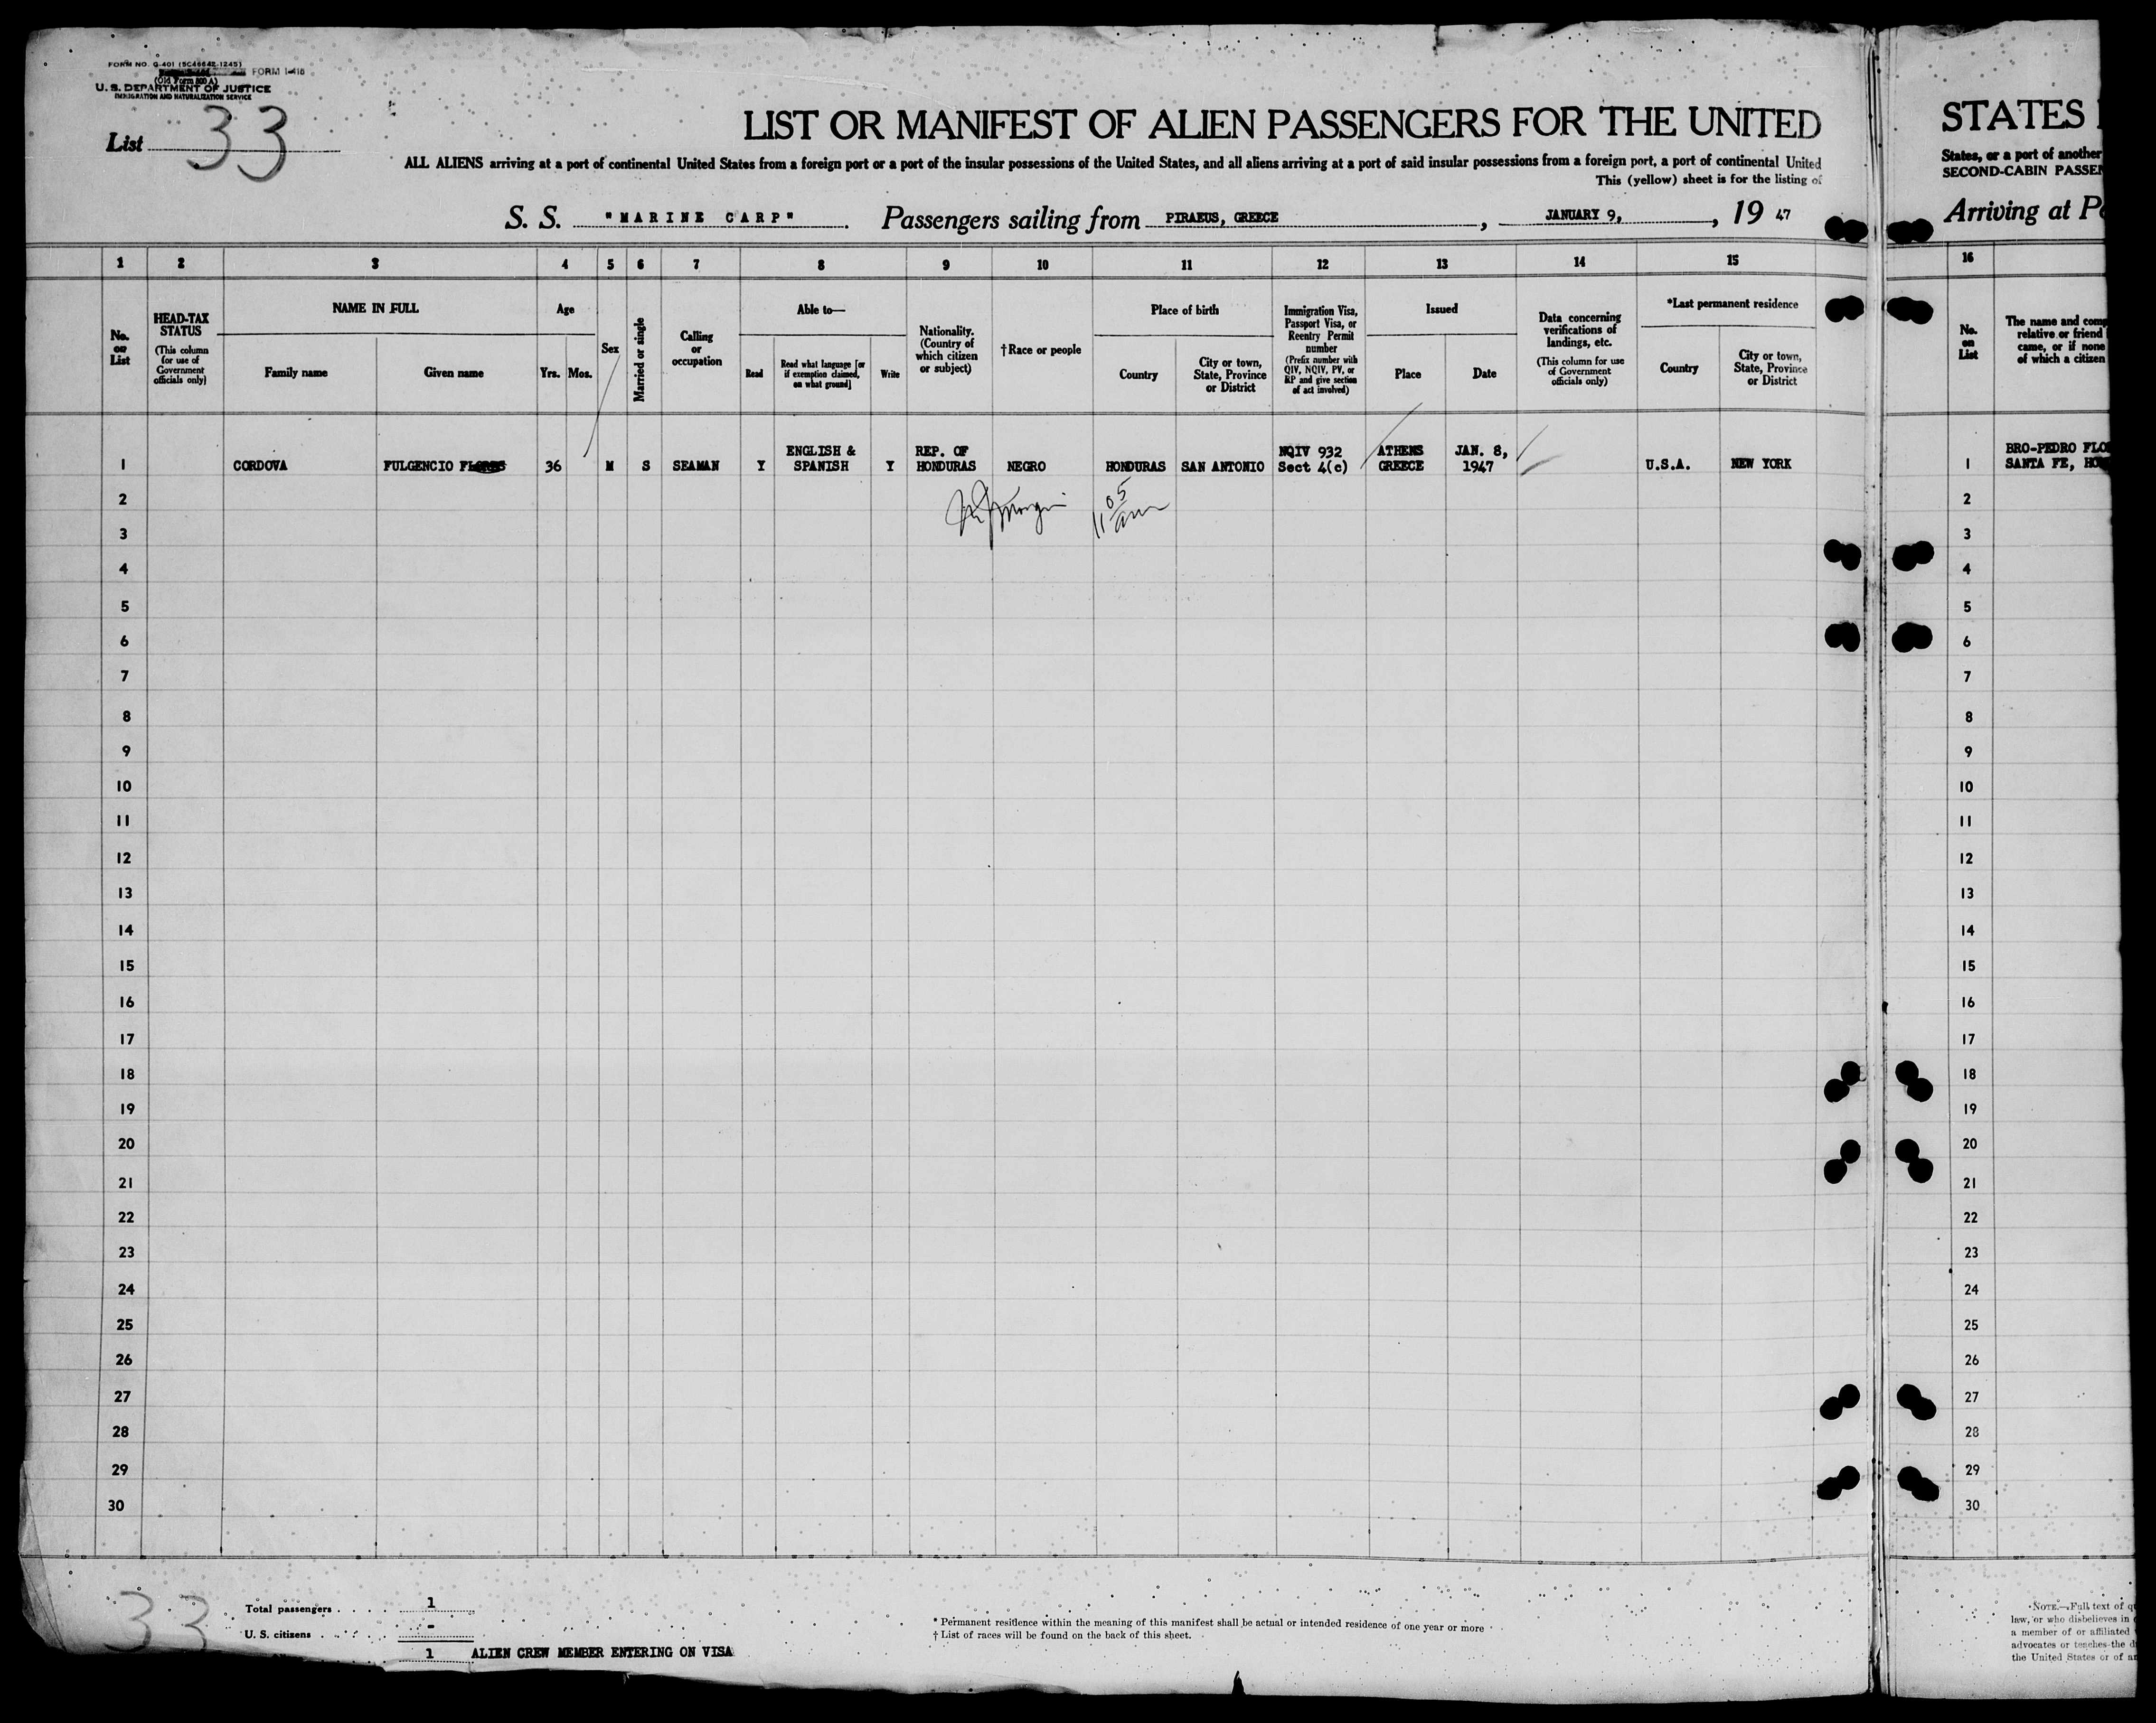 FORM NO. G-401 (SC46642-1245)
FORM I-416
(Old Form 500 A)
U. S. DEPARTMENT OF JUSTICE
IMMIGRATION AND NATURALIZATION SERVICE
List 33
LIST OR MANIFEST OF ALIEN PASSENGERS FOR THE UNITED
ALL ALIENS arriving at a port of continental United States from a foreign port or a port of the insular possessions of the United States, and all aliens arriving at a port of said insular possessions from a foreign port, a port of continental United
This (yellow) sheet is for the listing of
S. S. "MARINE CARP". Passengers sailing from PIRAEUS, GREECE, JANUARY 9, , 19 47
1 2 3 4 5 6 7 8 9 10 11 12 13 14 15
No. on List
HEAD-TAX STATUS
(This column for use of Government officials only)
NAME IN FULL
Family name Given name
Age
Yrs. Mos.
Sex
Married or single
Calling or occupation
Able to—
Read
Read what language [or if exemption claimed, on what ground]
Write
Nationality. (Country of which citizen or subject)
†Race or people
Place of birth
Country
City or town, State, Province or District
Immigration Visa, Passport Visa, or Reentry Permit number
(Prefix number with QIV, NQIV, PV, or RP and give section of act involved)
Issued
Place Date
Data concerning verifications of landings, etc.
(This column for use of Government officials only)
*Last permanent residence
Country
City or town, State, Province or District
1 CORDOVA FULGENCIO FLORES 36 M S SEAMAN Y ENGLISH & SPANISH Y REP. OF HONDURAS NEGRO HONDURAS SAN ANTONIO NQIV 932 Sect 4(c) ATHENS GREECE JAN. 8, 1947 U.S.A. NEW YORK
11 05 am
2
3
4
5
6
7
8
9
10
11
12
13
14
15
16
17
18
19
20
21
22
23
24
25
26
27
28
29
30
33
Total passengers 1
U. S. citizens -
1 ALIEN CREW MEMBER ENTERING ON VISA
* Permanent residence within the meaning of this manifest shall be actual or intended residence of one year or more
† List of races will be found on the back of this sheet.
STATES
States, or a port of another
SECOND-CABIN PASSEN
Arriving at Po
16
No. on List
The name and comp
relative or friend
came, or if none
of which a citizen
1 BRO-PEDRO FLO
SANTA FE, HO
2
3
4
5
6
7
8
9
10
11
12
13
14
15
16
17
18
19
20
21
22
23
24
25
26
27
28
29
30
NOTE.—Full text of q
law, or who disbelieves in
a member of or affiliated
advocates or teaches the d
the United States or of a